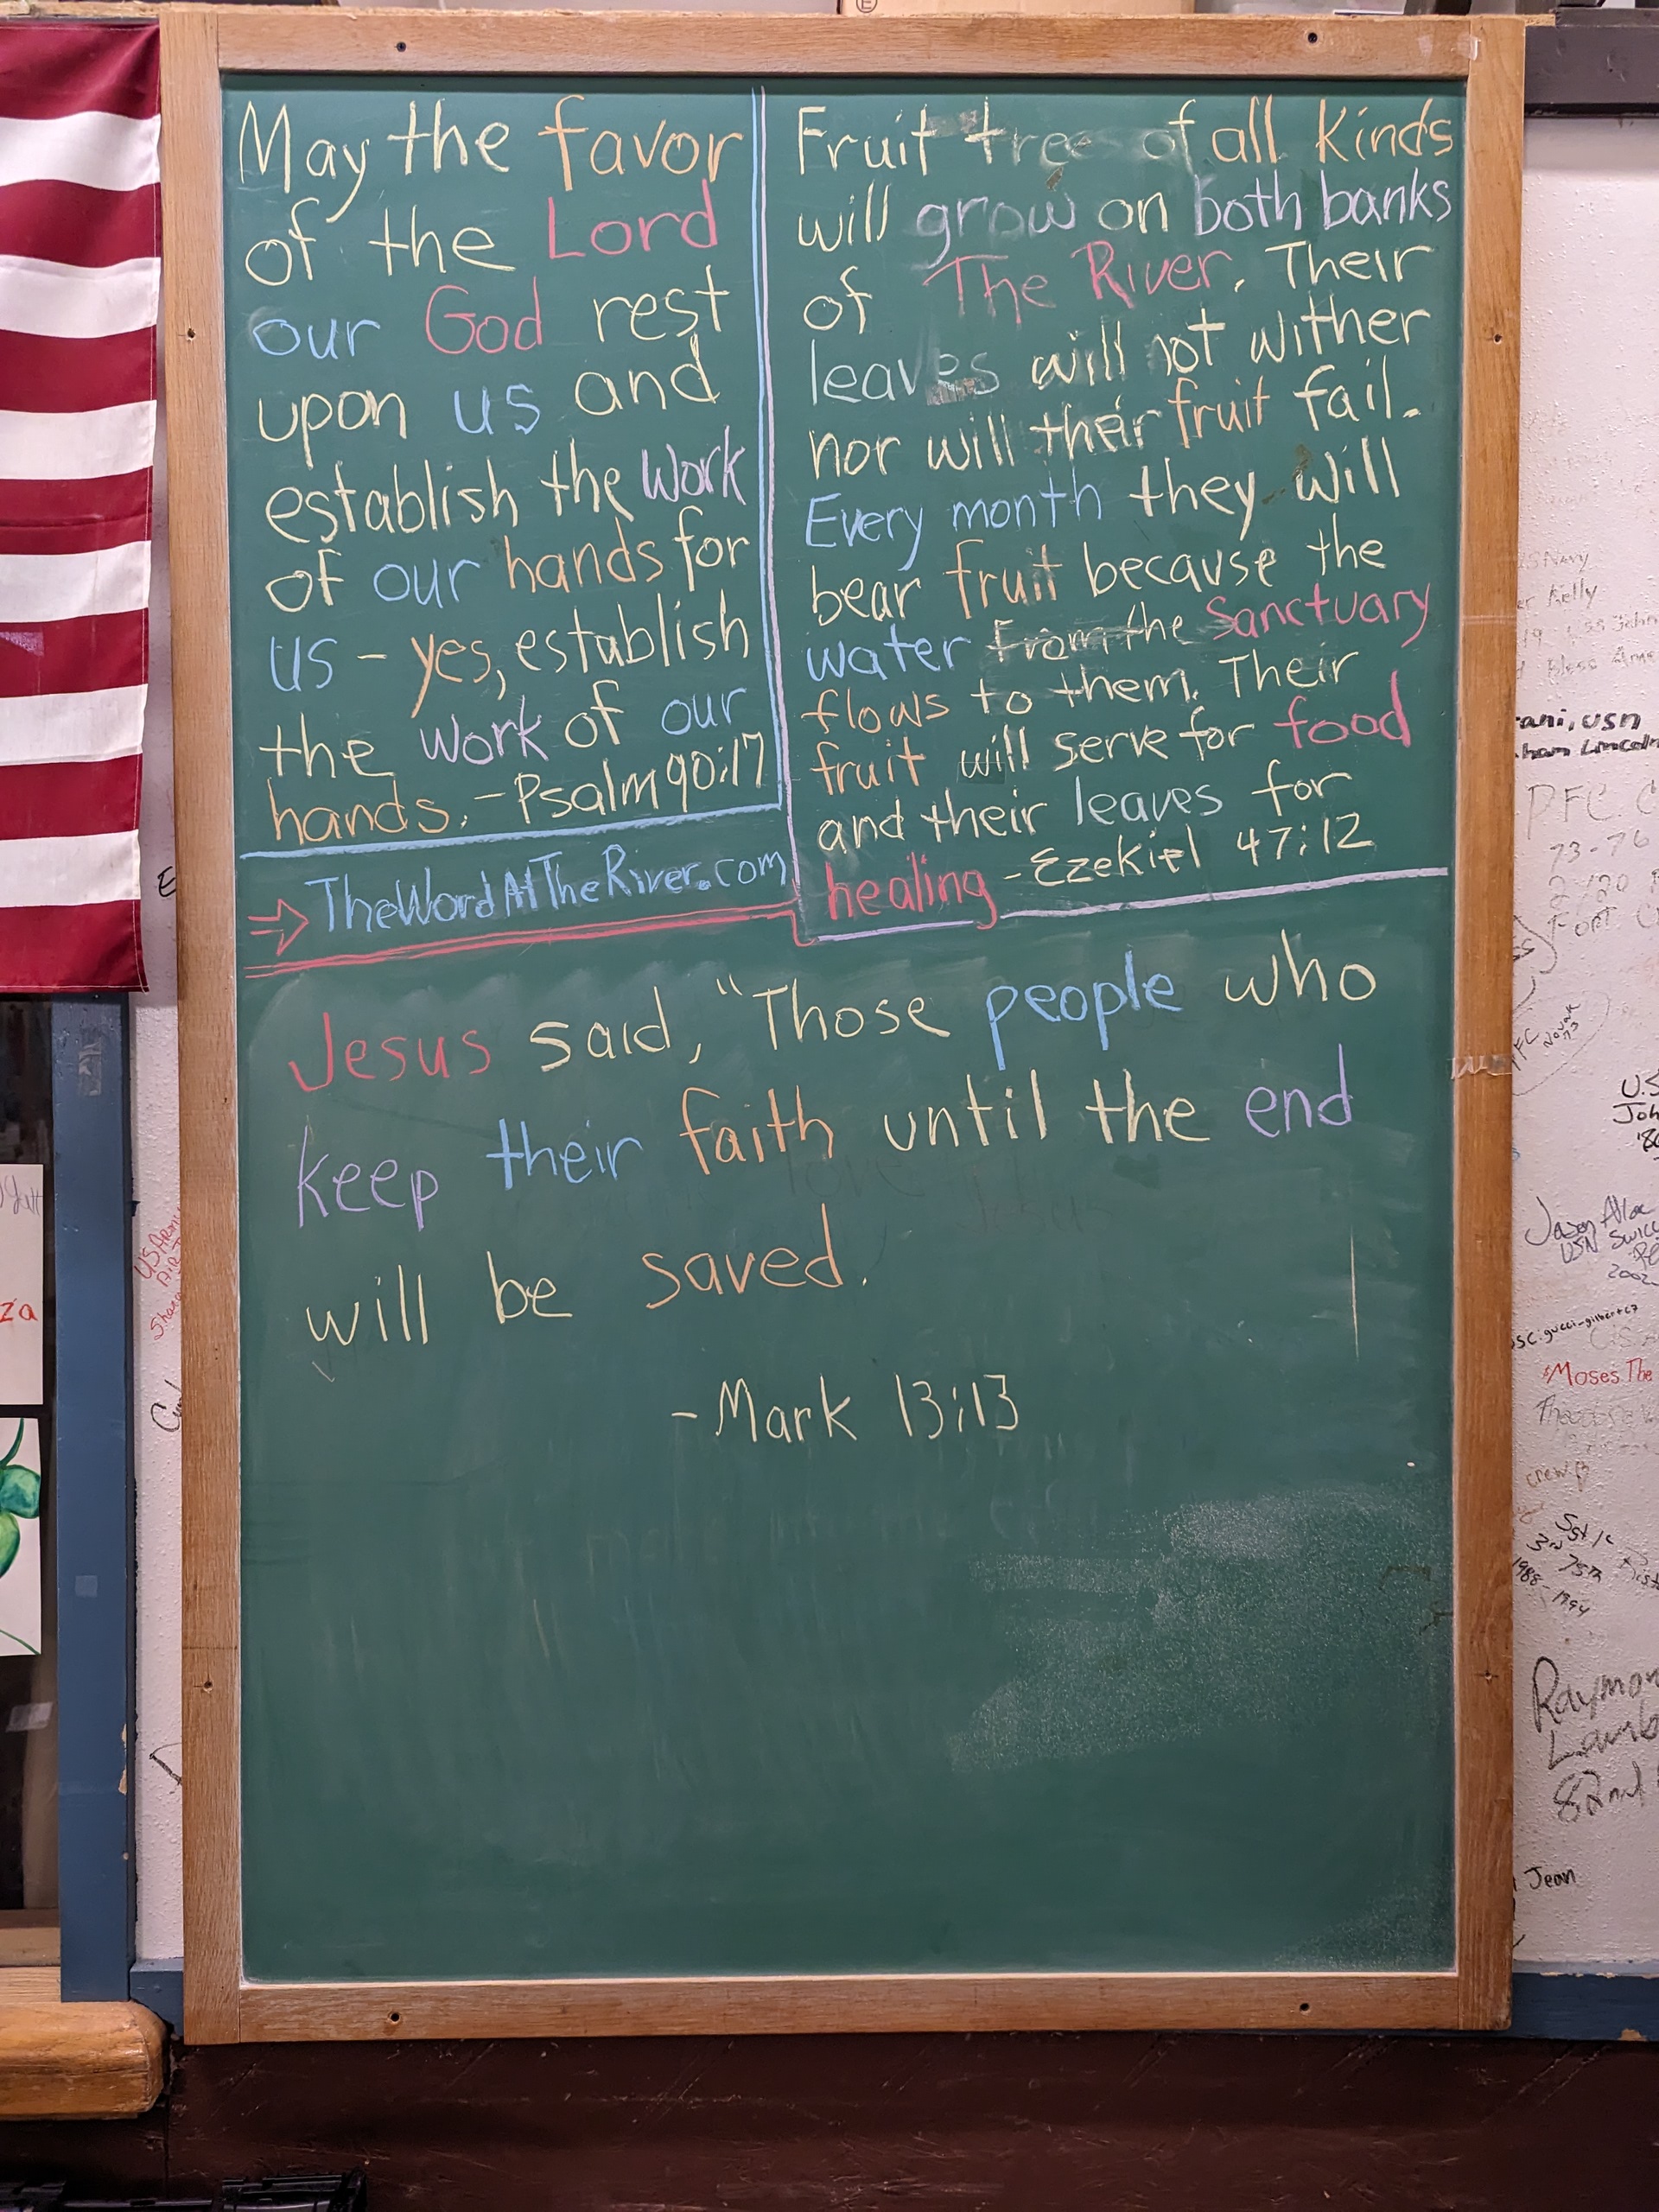 May the favor
of the Lord
our God rest
upon us and
establish the work
of our hands for
us - yes, establish
the work of our
hands. - Psalm 90:17
Fruit trees of all kinds
will grow on both banks
of The River. Their
leaves will not wither
nor will their fruit fail.
Every month they will
bear fruit because the
water from the Sanctuary
flows to them. Their
fruit will serve for food
and their leaves for
healing - Ezekiel 47:12
⇒ TheWordAtTheRiver.com
Jesus said, "Those people who
keep their faith until the end
will be saved.
- Mark 13:13
US Navy
Kelly
Bless
rani, USN
ham Lincoln
PFC C
73-76
FORT
PFC
Novak
73
U.S
Joh
'8
Jason
USN
2002
SC.gucci_gilbert67
Moses The
Theodore
crew B
75th
1988-1994
Raymon
Lamb
82nd
Jean
US Army
za